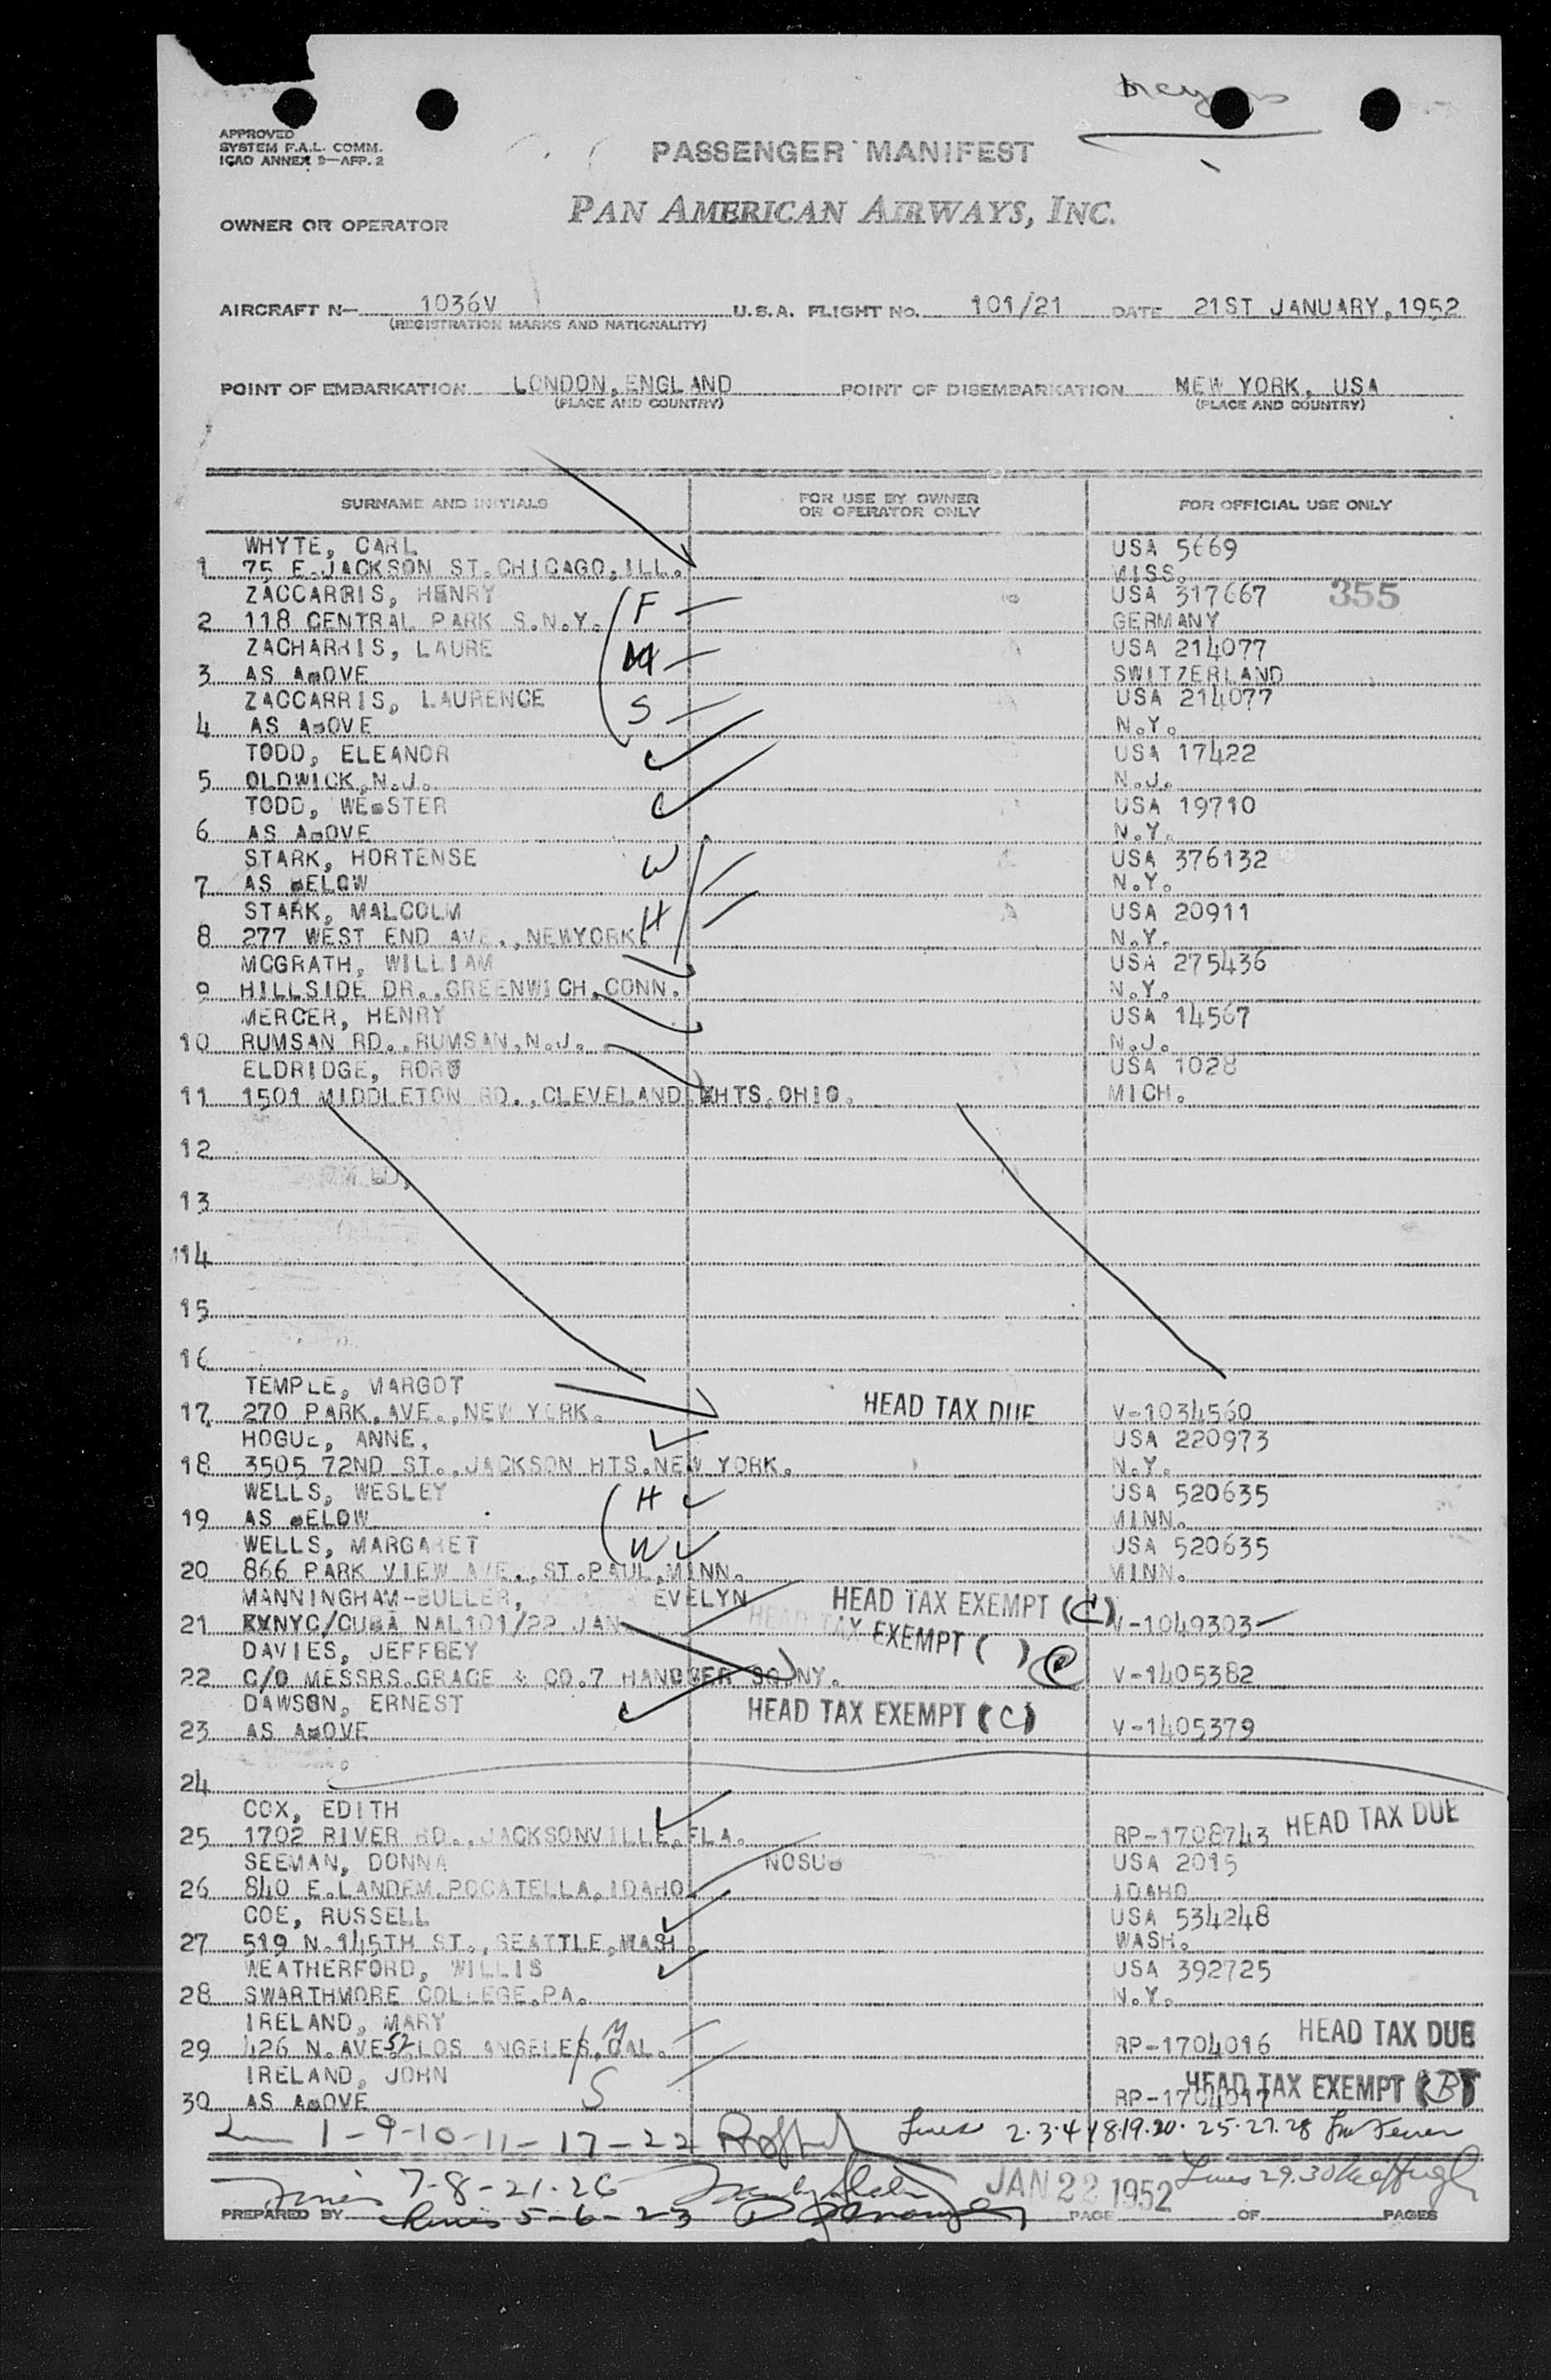 APPROVED
SYSTEM F.A.L. COMM.
ICAO ANNEX 9—APP. 2
PASSENGER MANIFEST
OWNER OR OPERATOR
PAN AMERICAN AIRWAYS, INC.
AIRCRAFT N— 1036V U.S.A. FLIGHT NO. 101/21 DATE 21ST JANUARY, 1952
(REGISTRATION MARKS AND NATIONALITY)
POINT OF EMBARKATION LONDON, ENGLAND POINT OF DISEMBARKATION NEW YORK, USA
(PLACE AND COUNTRY) (PLACE AND COUNTRY)
SURNAME AND INITIALS FOR USE BY OWNER OR OPERATOR ONLY FOR OFFICIAL USE ONLY
WHYTE, CARL USA 5669
1 75 E.JACKSON ST.CHICAGO,ILL. MISS.
ZACCARRIS, HENRY F USA 317667 355
2 118 CENTRAL PARK S.N.Y. GERMANY
ZACHARRIS, LAURE M USA 214077
3 AS ABOVE SWITZERLAND
ZACCARRIS, LAURENCE S USA 214077
4 AS ABOVE N.Y.
TODD, ELEANOR USA 17422
5 OLDWICK,N.J. N.J.
TODD, WEBSTER USA 19710
6 AS ABOVE N.Y.
STARK, HORTENSE W USA 376132
7 AS BELOW N.Y.
STARK, MALCOLM H USA 20911
8 277 WEST END AVE.,NEWYORK. N.Y.
MCGRATH, WILLIAM USA 275436
9 HILLSIDE DR.,GREENWICH,CONN. N.Y.
MERCER, HENRY USA 14567
10 RUMSAN RD.,RUMSAN,N.J. N.J.
ELDRIDGE, USA 1028
11 1501 MIDDLETON RD.,CLEVELAND HTS,OHIO. MICH.
12
13
14
15
16
TEMPLE, MARGOT
17 270 PARK.AVE.,NEW YORK. HEAD TAX DUE V-1034560
HOGUE, ANNE. USA 220973
18 3505 72ND ST.,JACKSON HTS.NEW YORK. N.Y.
WELLS, WESLEY H USA 520635
19 AS BELOW MINN.
WELLS, MARGARET W USA 520635
20 866 PARK VIEW AVE.,ST.PAUL,MINN. MINN.
MANNINGHAM-BULLER, EVELYN HEAD TAX EXEMPT (C)
21 XXNYC/CUBA NAL101/22 JAN HEAD TAX EXEMPT ( ) V-1049303
DAVIES, JEFFBEY
22 C/O MESSRS.GRACE & CO.7 HANOVER SQ.NY. C V-1405382
DAWSON, ERNEST HEAD TAX EXEMPT (C)
23 AS ABOVE V-1405379
24
COX, EDITH HEAD TAX DUE
25 1702 RIVER RD.,JACKSONVILLE,FLA. RP-1708743
SEEMAN, DONNA NOSUB USA 2015
26 840 E.LANDEM,POCATELLA,IDAHO IDAHO
COE, RUSSELL USA 534248
27 519 N.145TH ST.,SEATTLE,WASH. WASH.
WEATHERFORD, WILLIS USA 392725
28 SWARTHMORE COLLEGE,PA. N.Y.
IRELAND, MARY M HEAD TAX DUE
29 426 N.AVE 52 LOS ANGELES,CAL. RP-1704016
IRELAND, JOHN S HEAD TAX EXEMPT (B)
30 AS ABOVE RP-1704017
1-9-10-11-17-22 Lines 2.3.4 18.19.20. 25.27.28
Lines 7-8-21-26 JAN 22 1952 Lines 29.30
PREPARED BY Lines 5-6-23 PAGE OF PAGES